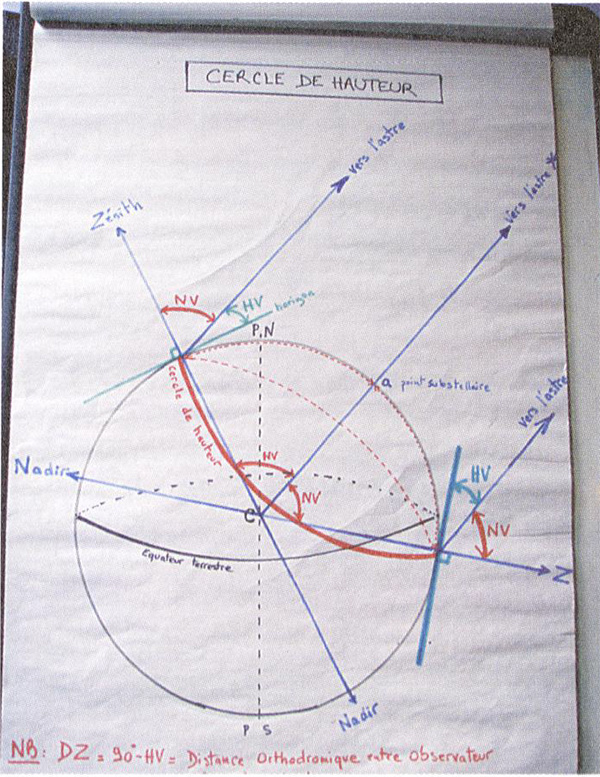 CERCLE DE HAUTEUR
vers l'astre
vers l'astre
Zénith
NV
HV
horizon
P.N
a point substellaire
cercle de hauteur
vers l'astre
Nadir
NV
HV
NV
NV
C
Equateur terrestre
Z
Nadir
P S
NB: DZ = 90°-HV = Distance Orthodromique entre observateur